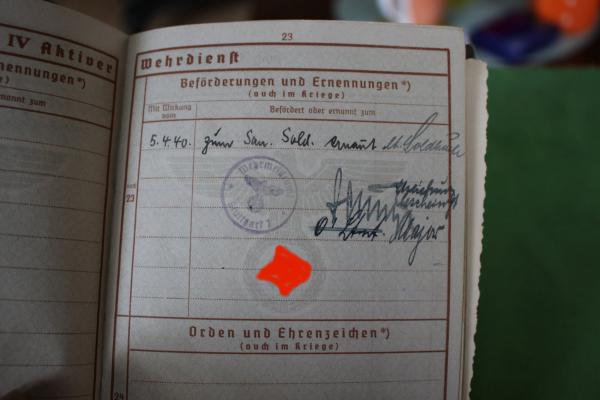 23
IV Aktiver
Wehrdienst
nennungen*)
Beförderungen und Ernennungen*)
(auch im Kriege)
nannt zum
Mit Wirkung vom
Befördert oder ernannt zum
5.4.40. zum San. Sold. ernannt lt. Soldbuch
Wehrmeldeamt
Stuttgart 2
noch 23
Major
Orden und Ehrenzeichen*)
(auch im Kriege)
24